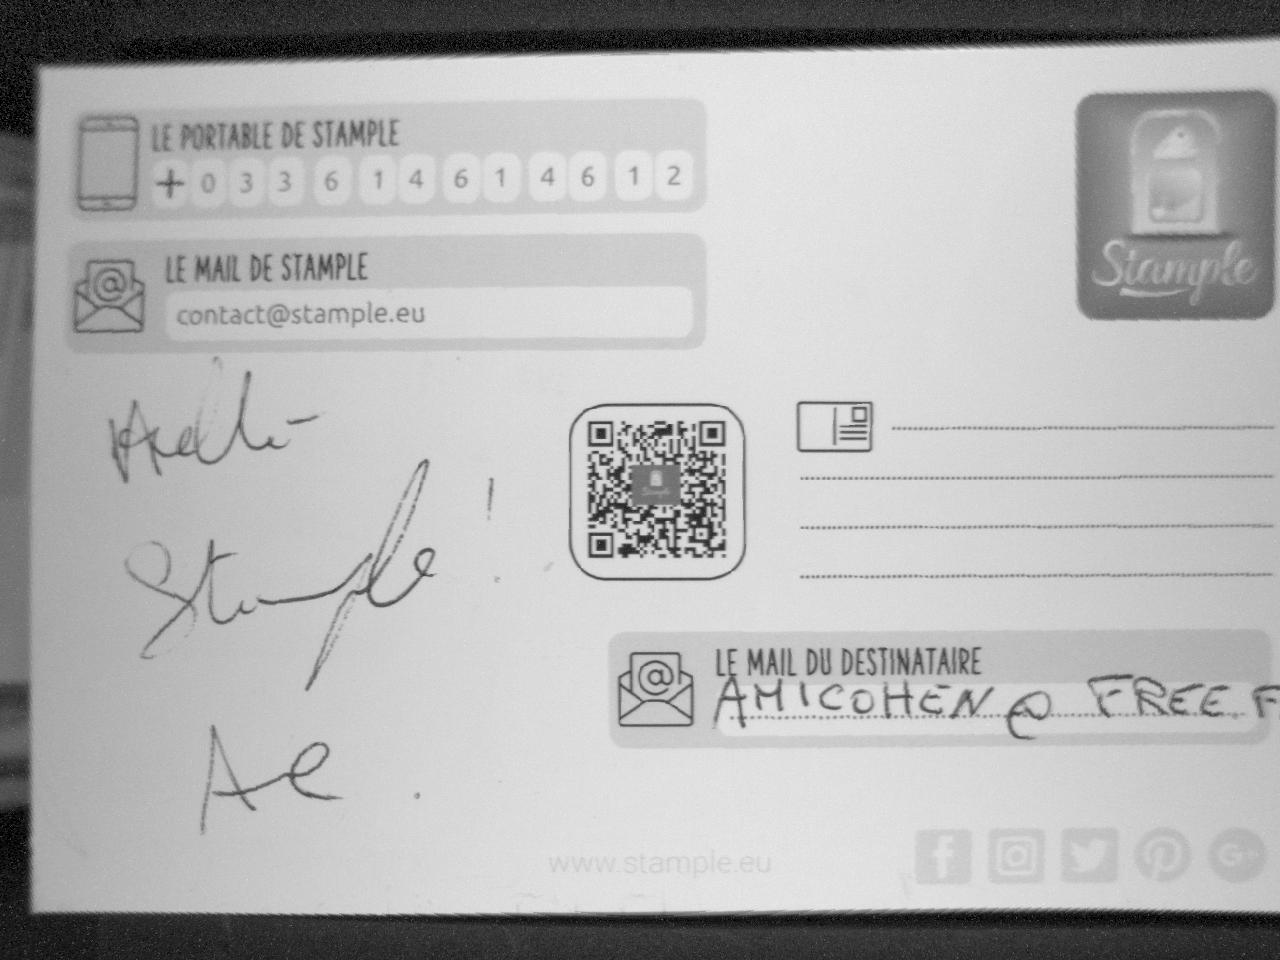 LE PORTABLE DE STAMPLE
+ 0 3 3 6 1 4 6 1 4 6 1 2
LE MAIL DE STAMPLE
contact@stample.eu
Stample
Stample !
LE MAIL DU DESTINATAIRE
AMICOHEN@FREE.F
www.stample.eu